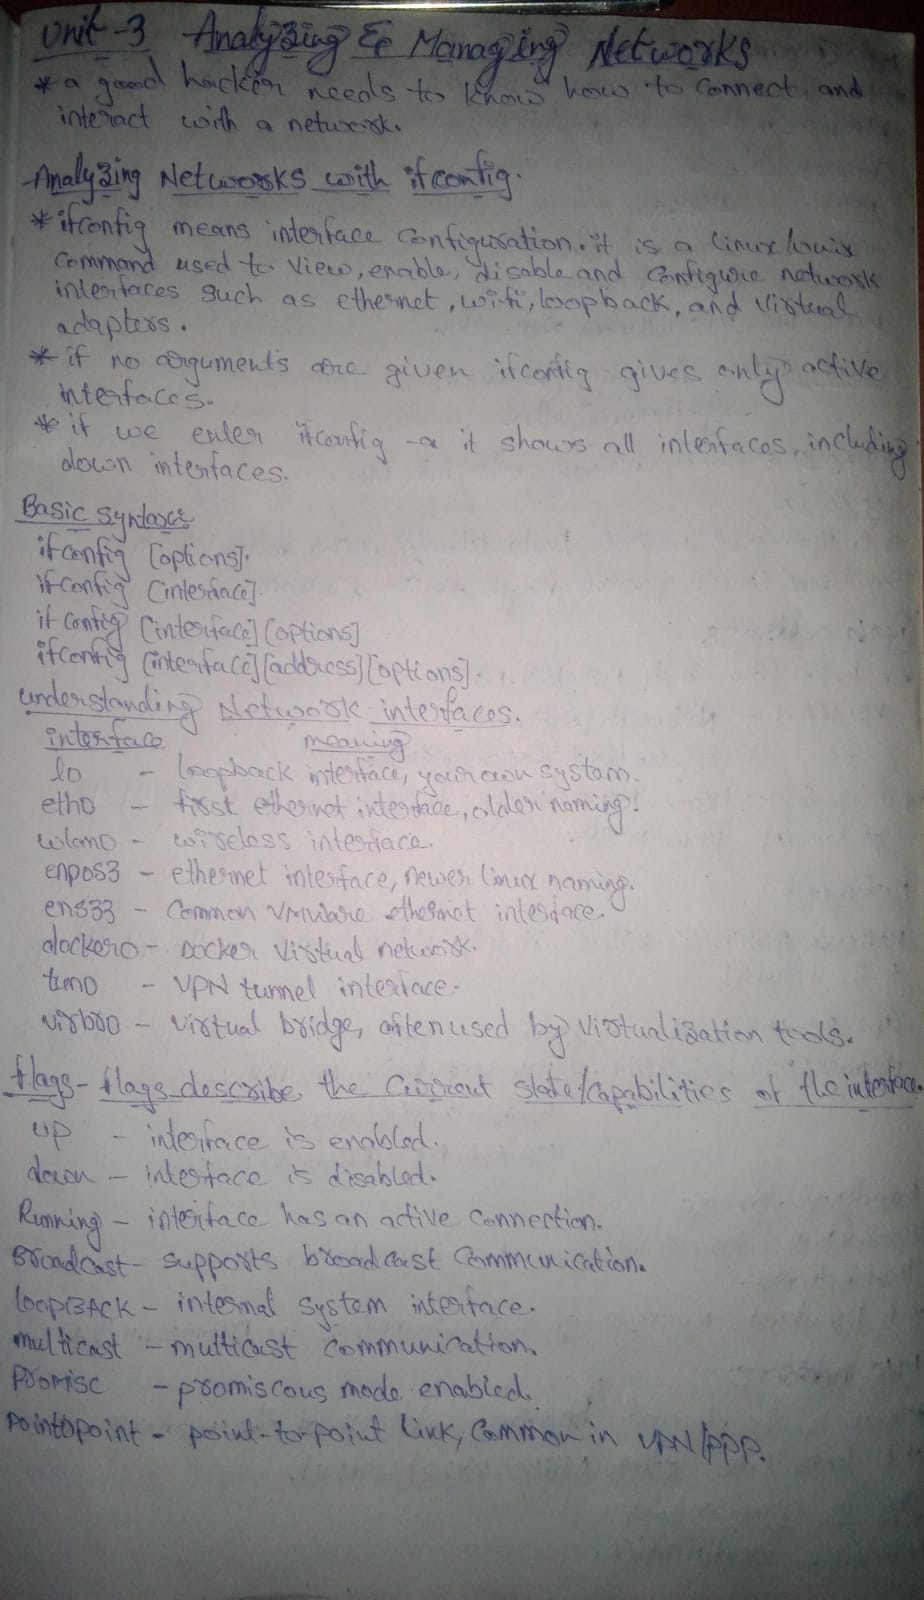 Unit-3 Analyzing & Managing Networks
* a good hacker needs to know how to connect and
interact with a network.
Analyzing Networks with ifconfig.
* ifconfig means interface configuration. it is a linux/unix
command used to view, enable, disable and configure network
interfaces such as ethernet, wifi, loopback, and virtual
adapters.
* if no arguments are given ifconfig gives only active
interfaces.
* if we enter ifconfig -a it shows all interfaces, including
down interfaces.
Basic syntaxes
ifconfig [options].
ifconfig [interface].
ifconfig [interface] [options]
ifconfig [interface] [address] [options].
understanding Network interfaces.
interface meaning
lo - loopback interface, your own system.
eth0 - first ethernet interface, older naming.
wlan0 - wireless interface.
enp0s3 - ethernet interface, newer linux naming.
ens33 - Common VMWare ethernet interface.
docker0 - Docker virtual network.
tun0 - VPN tunnel interface.
virbr0 - virtual bridge, often used by virtualization tools.
flags - flags describe the current state/capabilities of the interface.
up - interface is enabled.
down - interface is disabled.
Running - interface has an active connection.
Broadcast - supports broadcast communication.
loopBACK - internal system interface.
multicast - multicast communication.
Promisc - promiscous mode enabled.
pointopoint - point-to-point link, common in VPN/PPP.